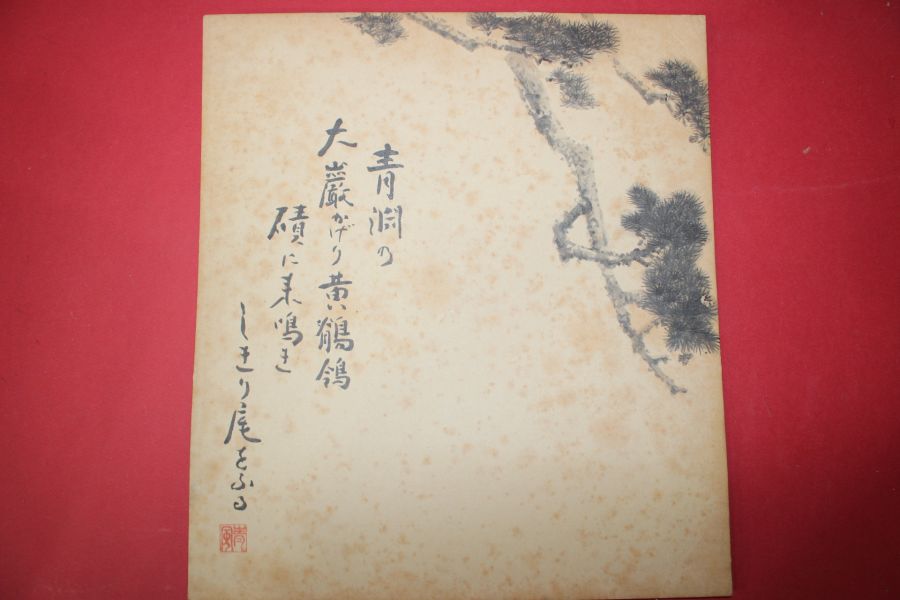 青淵の
大巌かげり黄鶺鴒
磧に来鳴き
しきり尾をふる